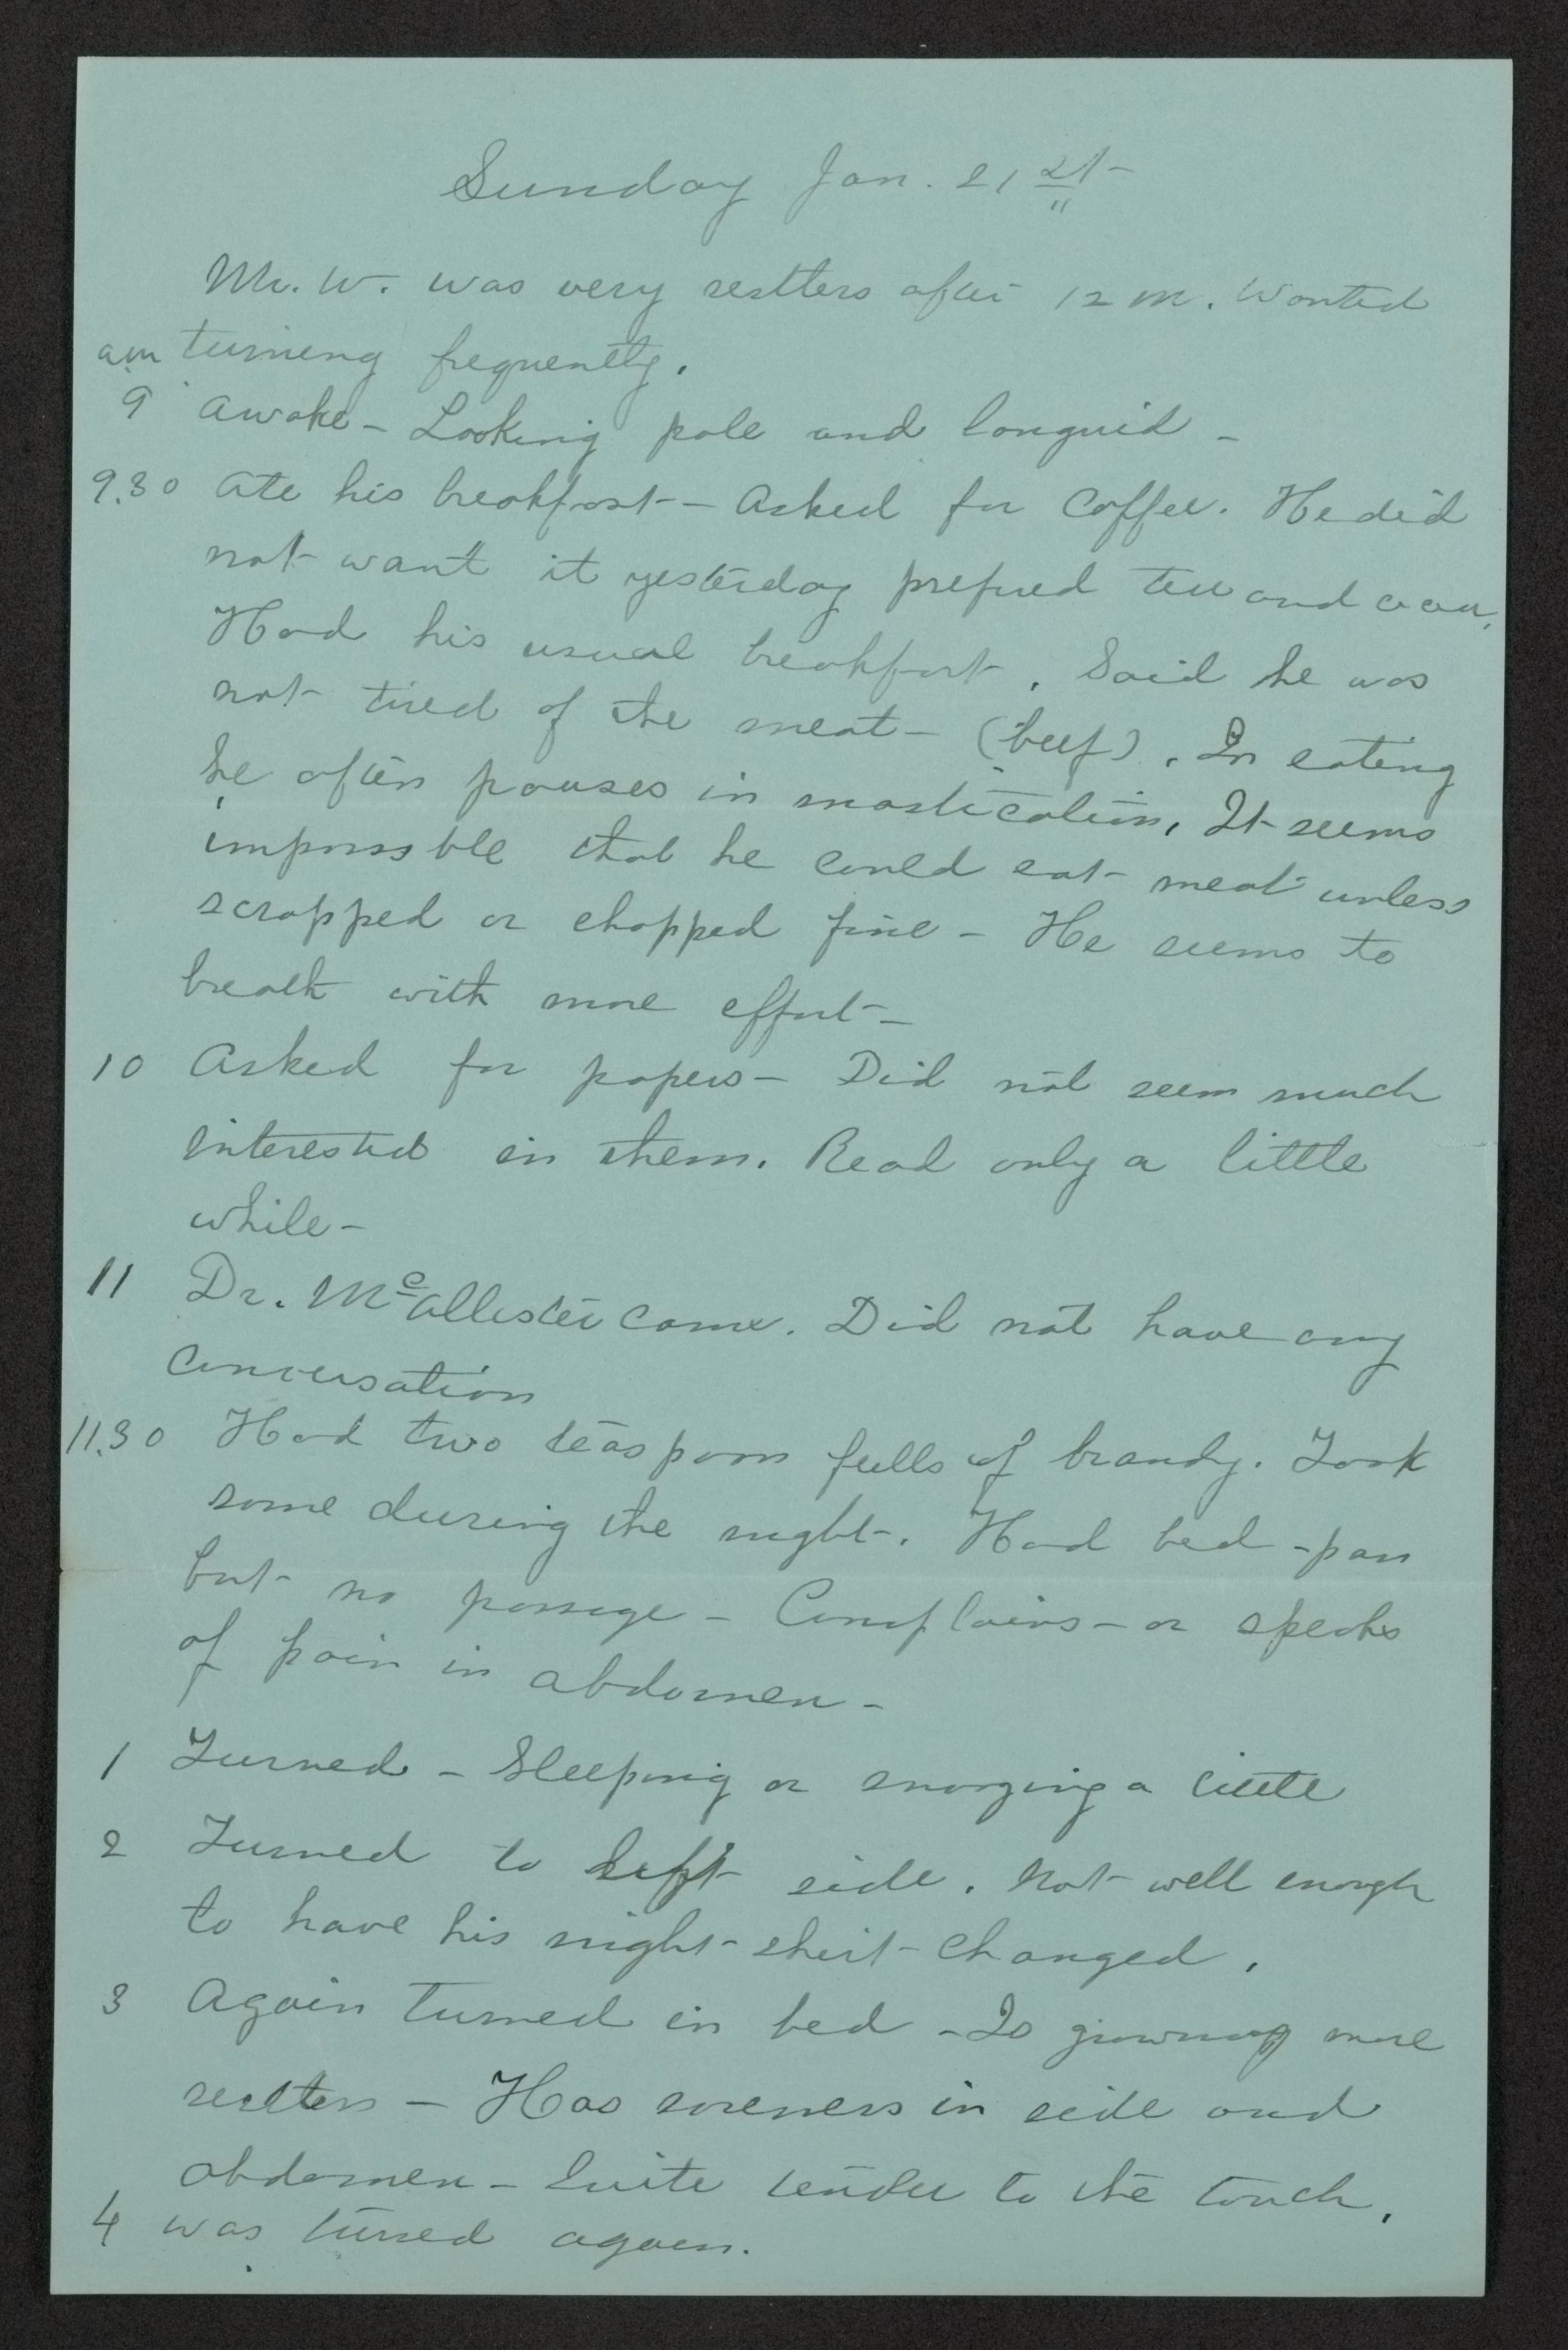 Sunday Jan. 21st
Mr. W. was very restless after 12 M. Wanted
am turning frequently.
9 Awoke - Looking pale and languid -
9.30 Ate his breakfast - Asked for coffee. He did
not want it yesterday prefered tea and cocoa.
Had his usual breakfast. Said he was
not tired of the meat - (beef). In eating
he often pauses in mastication. It seems
impossble that he could eat meat unless
scrapped or chopped fine - He seems to
breath with more effort -
10 Asked for papers - Did not seem much
interested in them. Read only a little
while -
11 Dr. McAllister came. Did not have any
conversation
11.30 Had two teaspoon fulls of brandy. Took
some during the night. Had bed-pan
but no passage - Complains - or speaks
of pain in abdomen -
1 Turned - Sleeping or snoozing a little
2 Turned to left side. Not well enough
to have his night-shirt changed.
3 Again turned in bed - Is growing more
restless - Has soreness in side and
abdomen - Quite tender to the touch.
4 was turned again.